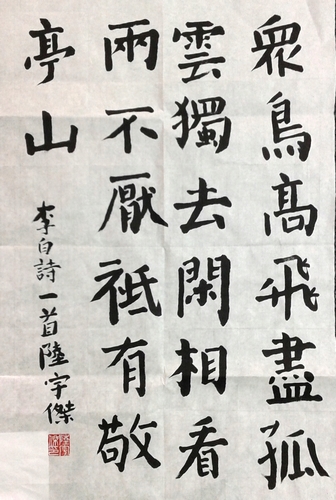 眾鳥高飛盡孤
雲獨去閑相看
兩不厭祗有敬
亭山
李白詩一首陸宇傑